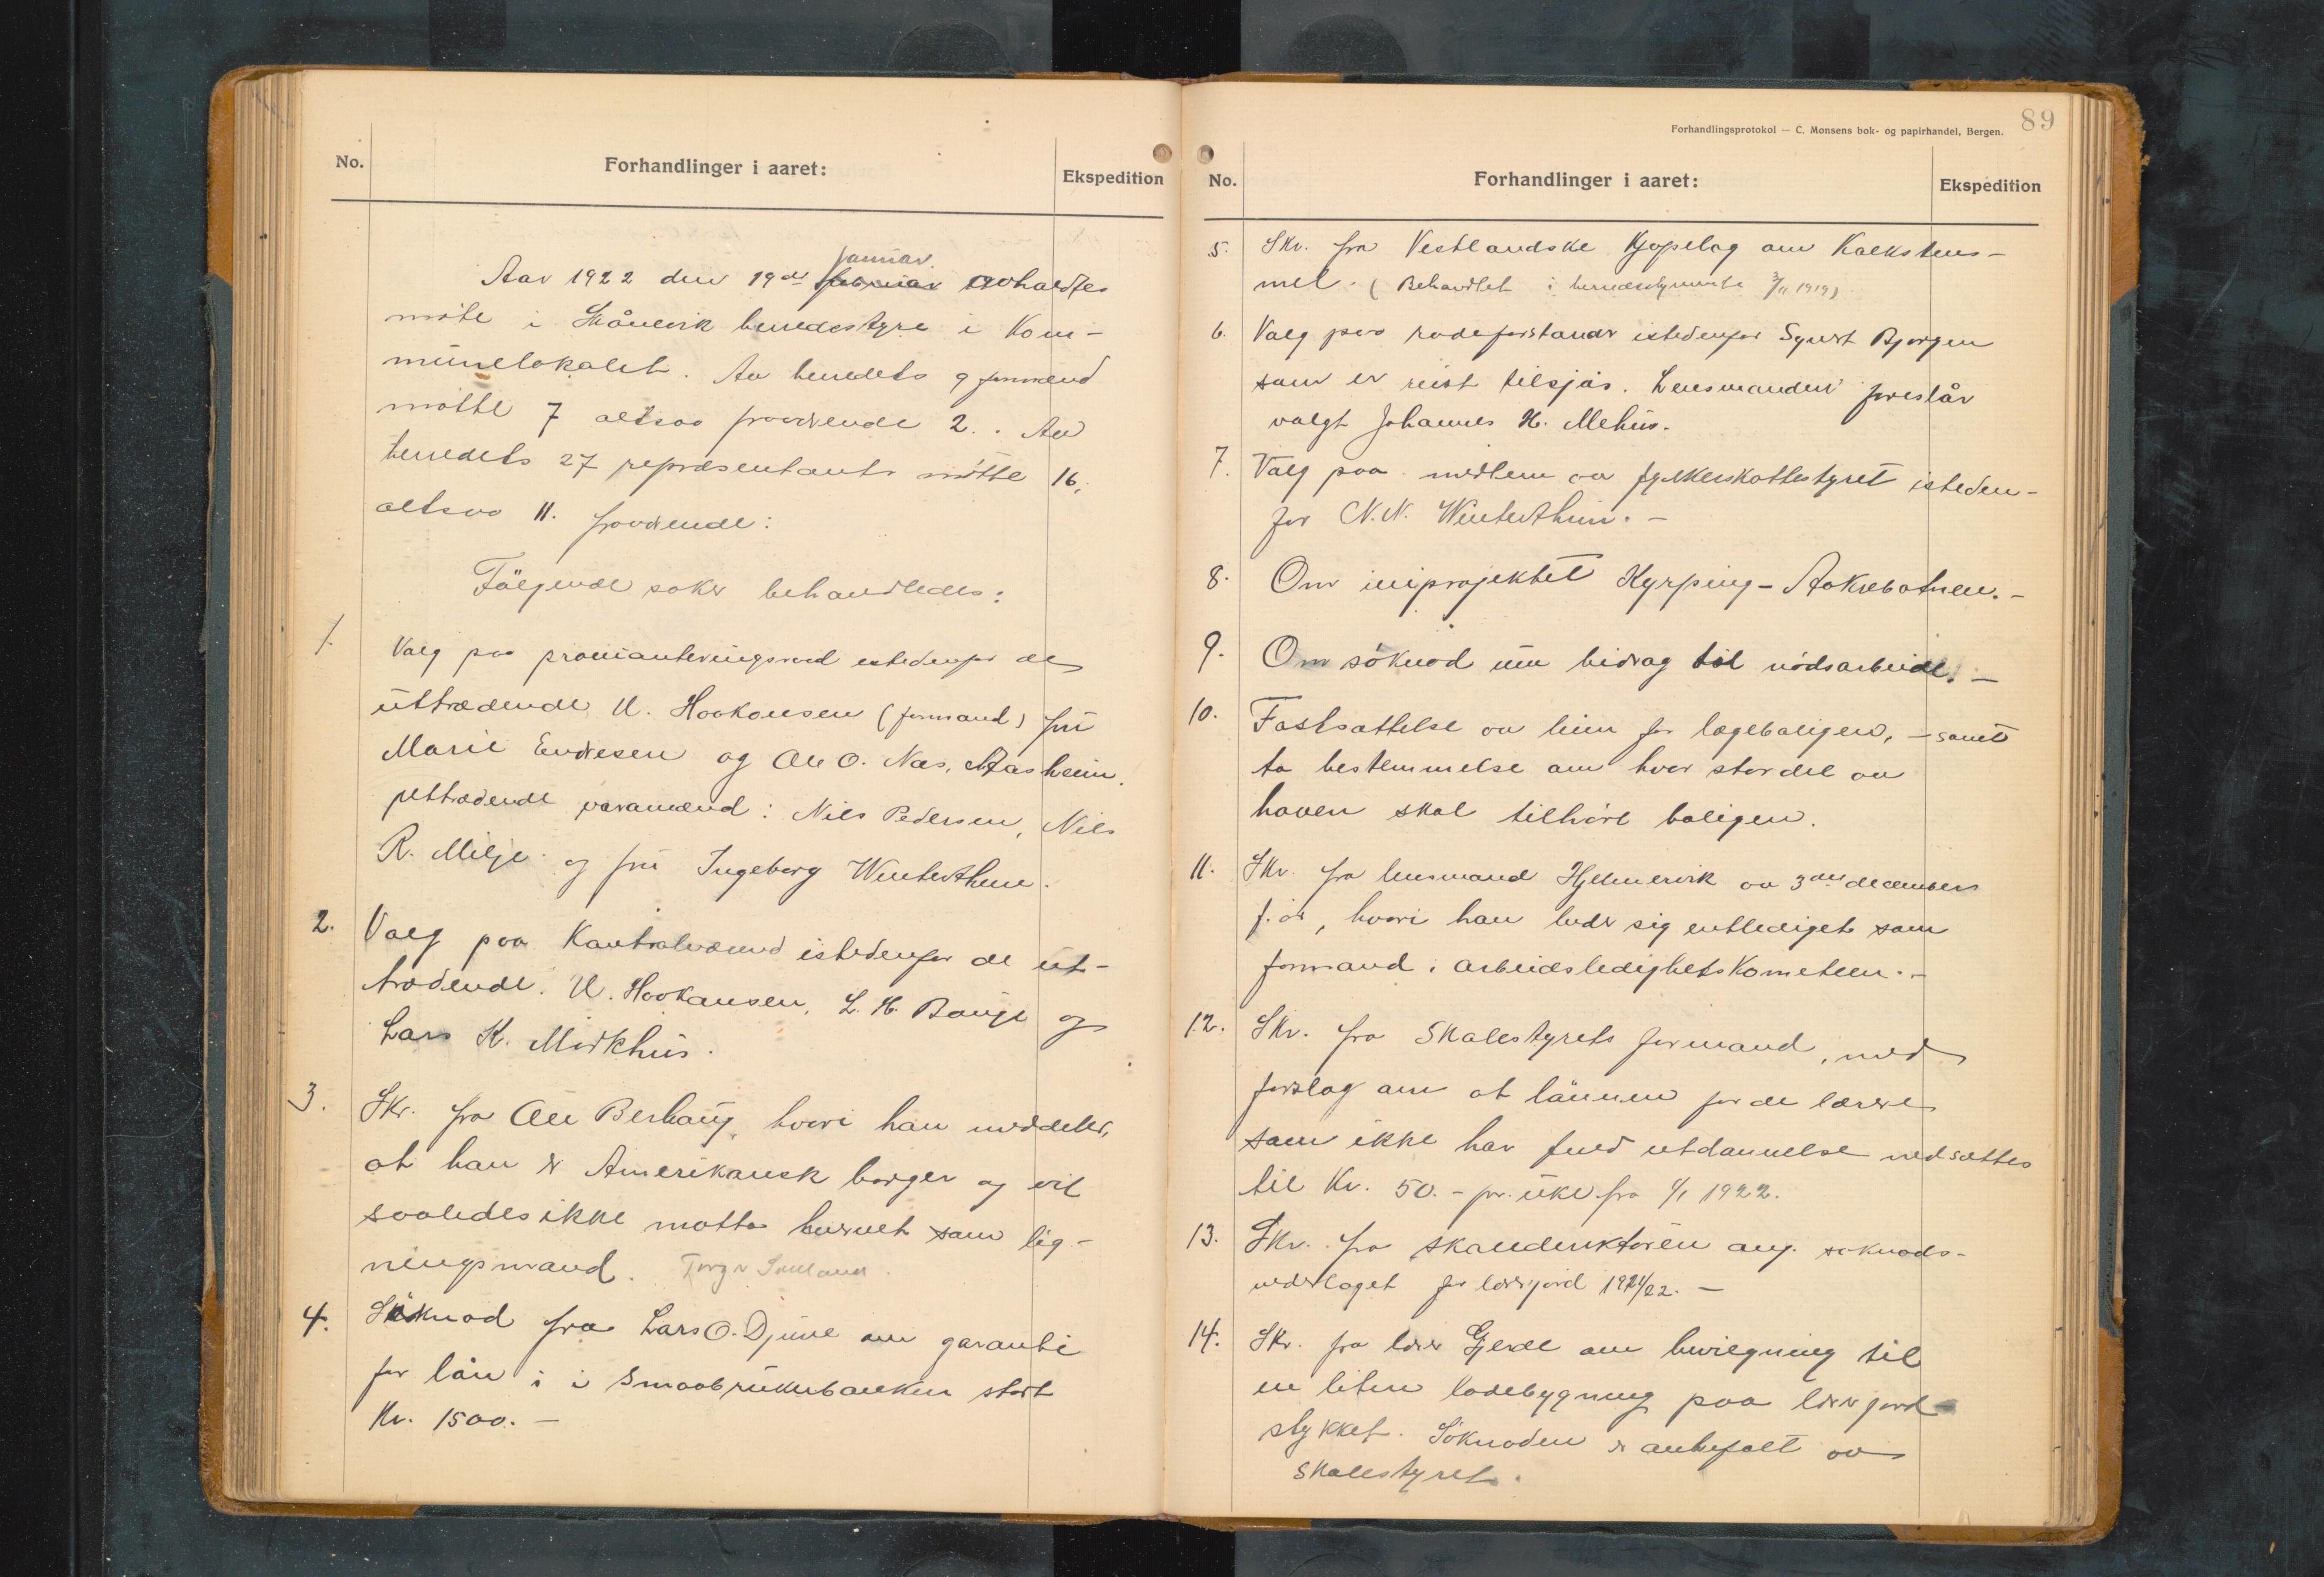 No.
Forhandlinger i aaret:
Ekspedition
januar.
Aar 1922 den 19de februar avholdtes
möte i Skånevik herredsstyre i Kom-
munelokalet. Av herredets 9 formænd
mötte 7 altsaa fraværende 2. Av
herredets 27 repræsentanter mötte 16,
altsaa 11. fraværende:
Fölgende saker behandledes:
1. Valg paa provianteringsraad istedenfor de
uttrædende N. Haakonsen (formand) fru
Marie Endresen og Ole O. Næs, Aasheim.
uttrædende varamænd: Niels Pedersen, Niels
R. Milje og fru Ingeborg Winterthun.
2. Valg paa Kontrolnævnd istedenfor de ut-
trædende: N. Haakonsen, L. H. Bauge og
Lars K. Mörkhus.
3. Skr. fra Ole Berhaug, hvori han meddeler,
at han er Amerikansk borger og vil
saaledes ikke motta hvervet som lig-
ningsmand.
4. Söknad fra Lars O. Djuve om garanti
for lån i i Smaabrukerbanken stort
Kr. 1500.-
Forhandlingsprotokol — C. Monsens bok- og papirhandel, Bergen.
89
No.
Forhandlinger i aaret:
Ekspedition
5. Skr. fra Vestlandske Kjöpelag om Kalkstens-
mel. (Behandlet i herredsstyremöte 3/11 1919)
6. Valg paa rodeforstander istedenfor Sjurt Bjorgen
som er reist tilsjös. Lensmanden foreslår
valgt Johannes H. Mehus.
7. Valg paa medlem av fylkesskattestyret isteden-
for N. N. Winterthun.-
8. Om veiprojektet Kyrping-Aakrebotnen.-
9. Om söknad um bidrag til nödsarbeide.-
10. Fastsættelse av leien for lægeboligen, - samt
ta bestemmelse om hvor stor del av
haven skal tilhöre boligen.
11. Skr. fra lensmand Hjelmervik av 3die december
f. år, hvori han beder sig entlediget som
formand i arbeidsledighetskometeen.-
12. Skr. fra Skolestyrets formand, med
forslag om at lönnen for de lærere
som ikke har fuld utdannelse nedsættes
til Kr. 50.- pr. uke fra 1/1 1922.
13. Skr. fra skoledirektören ang. söknads-
underlaget for lærerjord 1921/22.-
14. Skr. fra lærer Gjerde om bevilgning til
en liten ladebygning paa lærerjord-
stykket. Söknaden er anbefalt av
Skolestyret.